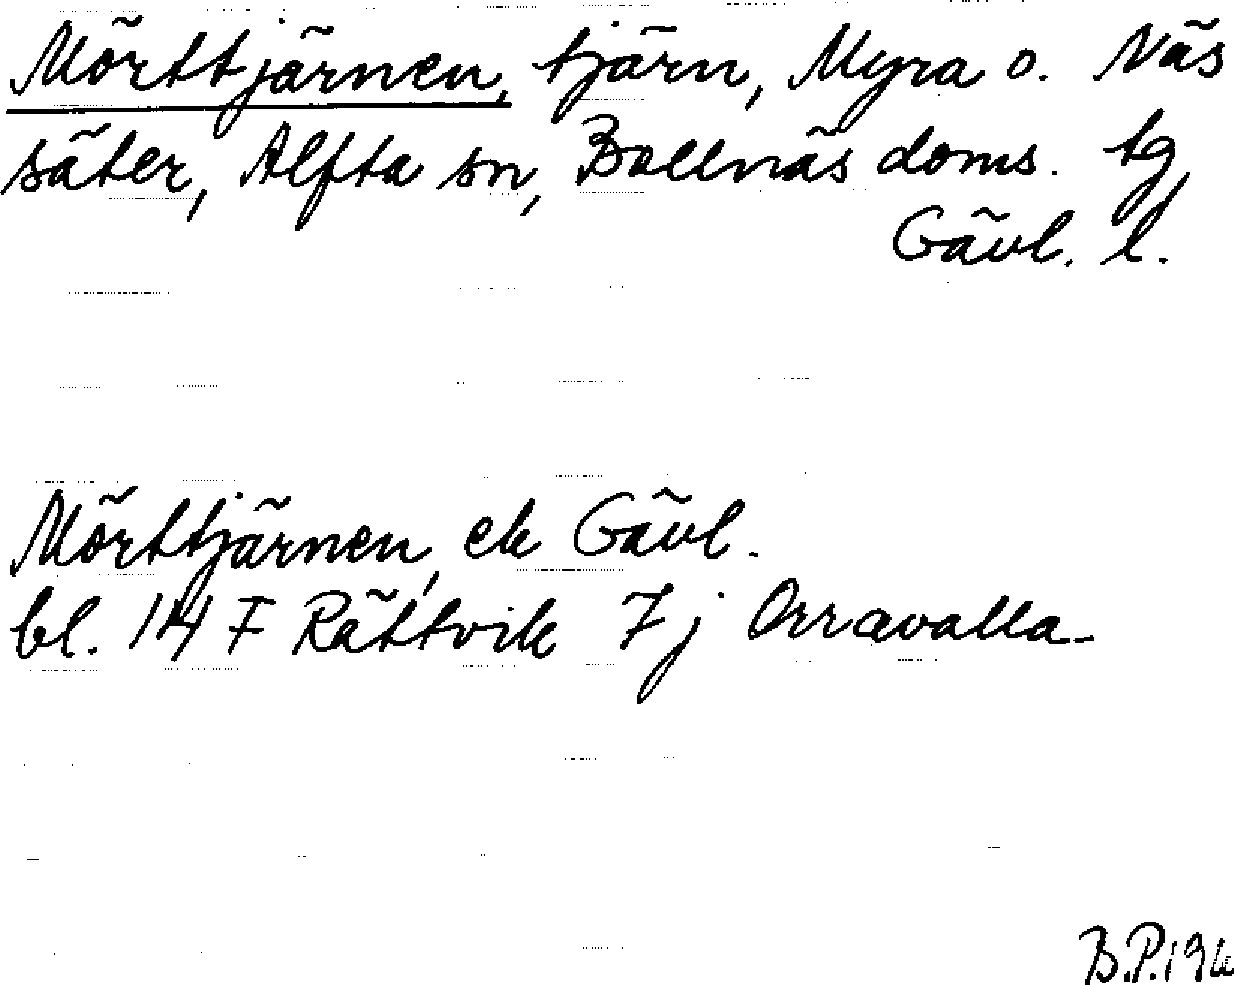 Mörttjärnen, tjärn, Myra o. Näs
säter, Alfta sn, Bollnäs doms. tg,
Gävl. l.
Mörttjärnen, ek Gävl.
bl. 114 F Rättvik 7j Orravalla
B.P.